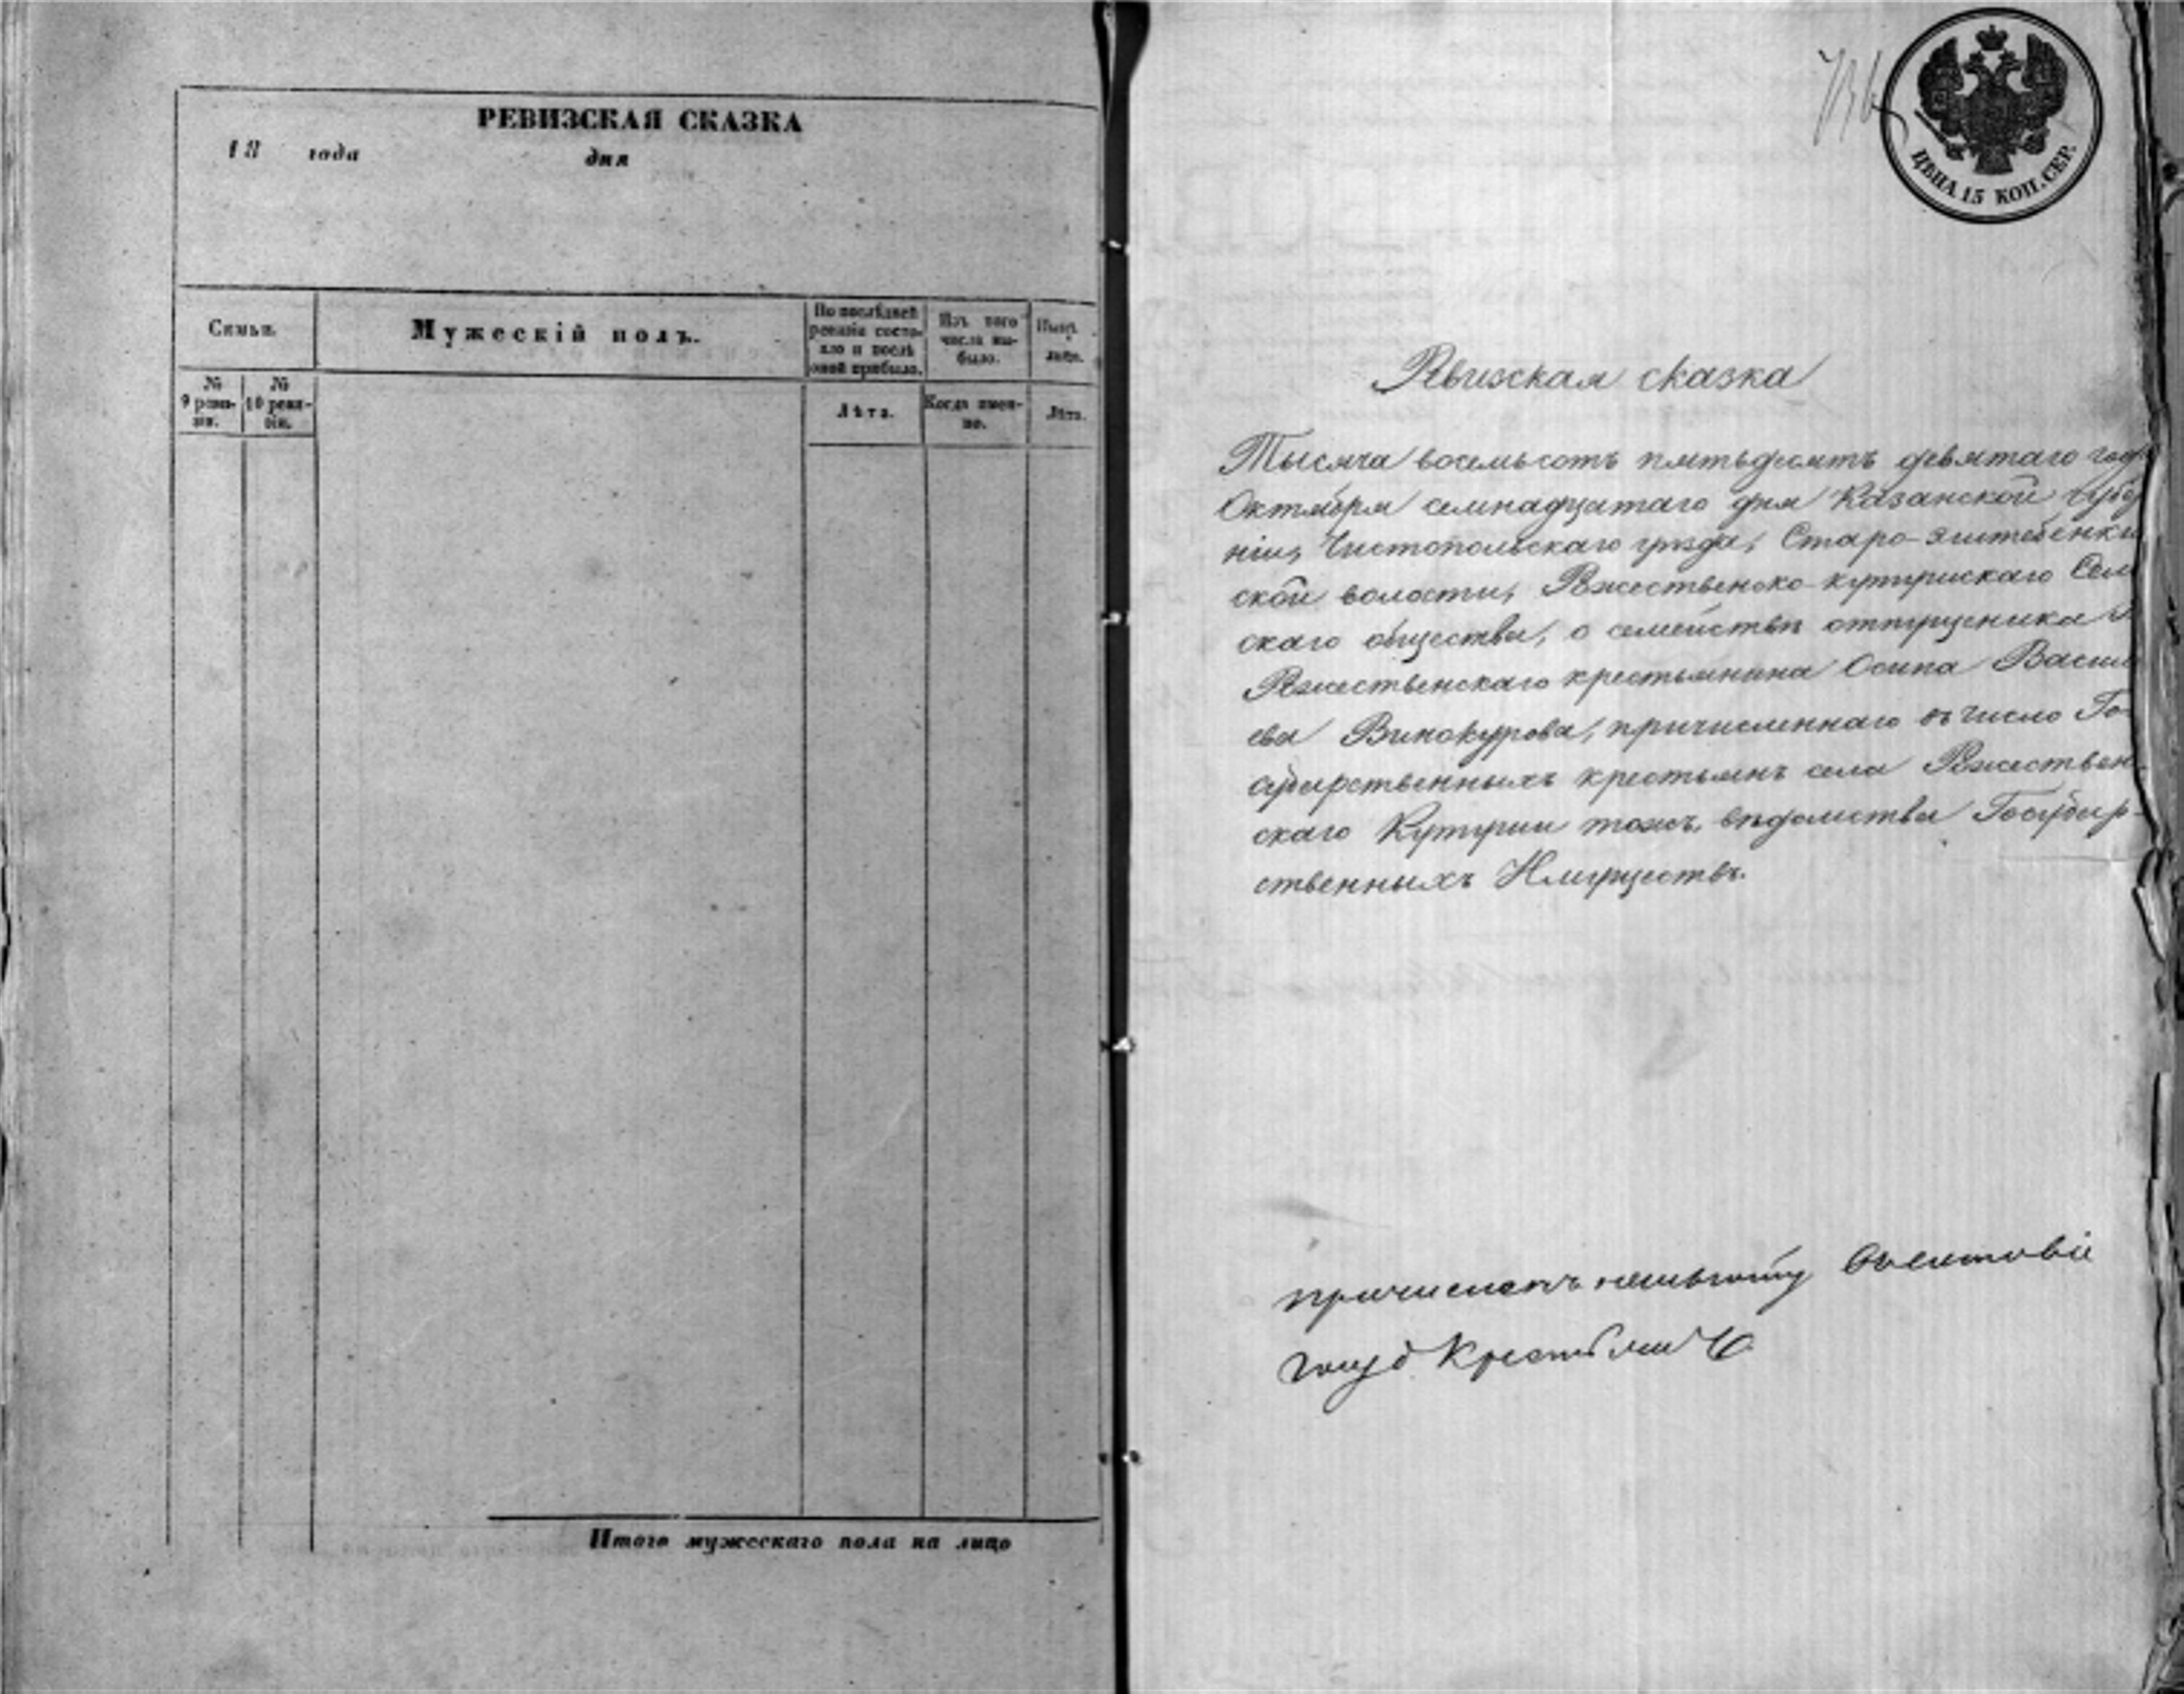 РЕВИЗСКАЯ СКАЗКА
18 года дня
Семьи.
Мужескій полъ.
По послѣдней
ревизіи состо-
яло и послѣ
оной прибыло.
Изъ того
числа вы-
было.
Нынѣ
лицо.
№
9 реви-
зіи.
№
10 реви-
зіи.
Лѣта.
Когда имен-
но.
Лѣта.
Итого мужескаго пола на лицо
ЦѢНА 15 КОП. СЕР.
Рвизская сказка
Тысяча восемьсотъ пятьдесятъ девятаго год
Октября семнадцатаго дня Казанской Губер
ніи, Чистопольскаго уѣзда, Старо-
ской волости, Ржественско-кутушскаго Сель
скаго общества, о семействѣ отпущеника
Ржественскаго крестьянина Осипа Василь
ева Винокурова, причисленнаго въ число Го-
сударственныхъ крестьянъ села Ржествен-
скаго Кутуши тожъ, вѣдомства Государ-
ственныхъ Имуществъ.
причисленъ